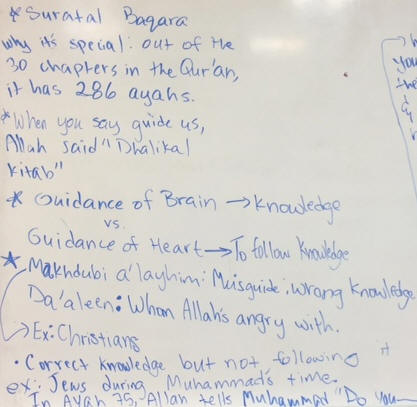 * Suratal Baqara
why it's special: out of the
30 chapters in the Qur'an,
it has 286 ayahs.
* When you say guide us,
Allah said "Dhalikal
kitab"
* Guidance of Brain → knowledge
vs.
Guidance of Heart → To follow knowledge
* Makhdubi a'layhim: Misguide. wrong knowledge
Da'aleen: Whom Allah's angry with.
→ Ex: Christians
• Correct knowledge but not following it
ex: Jews during Muhammad's time.
In Ayah 75, Allah tells Muhammad "Do you
you
the
&